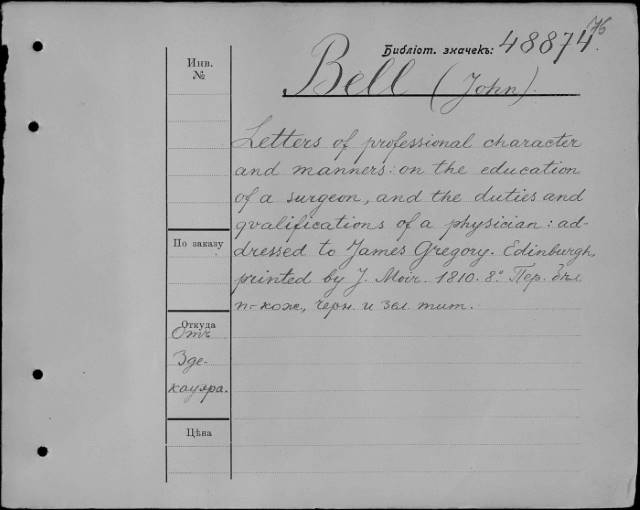 76
Библіот. значекъ: 48874.
Инв.
№
Bell (John).
Letters of professional character
and manners: on the education
of a surgeon, and the duties and
qvalifications of a physician: ad-
По заказу
dressed to James Gregory. Edinburgh,
printed by J. Moir. 1810. 8.° Пер. бѣл
п-кож, черн. и зел. тит.
Откуда
Отъ
Зде-
кауера.
Цѣна